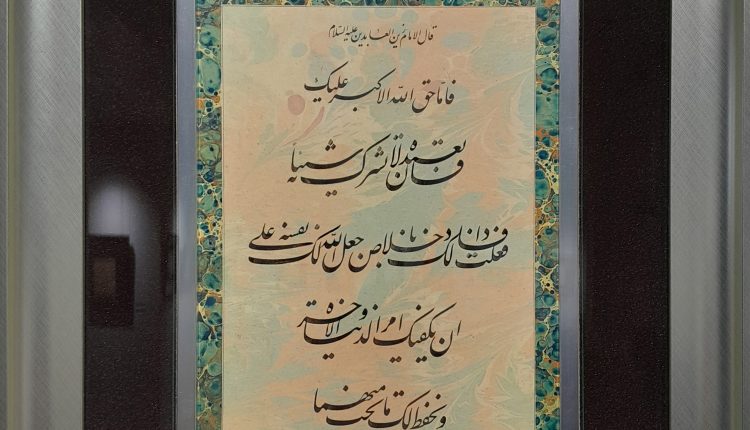 قال الامام زین العابدین علیه السلام
فامّا حق الله الاکبر علیک
فان تعبده لا تشرک به شیئاً
فاذا فعلت ذلک باخلاص جعل الله لک علی نفسه
ان یکفیک امر الدنیا و الاخره
و یحفظ لک ما تحب منهما